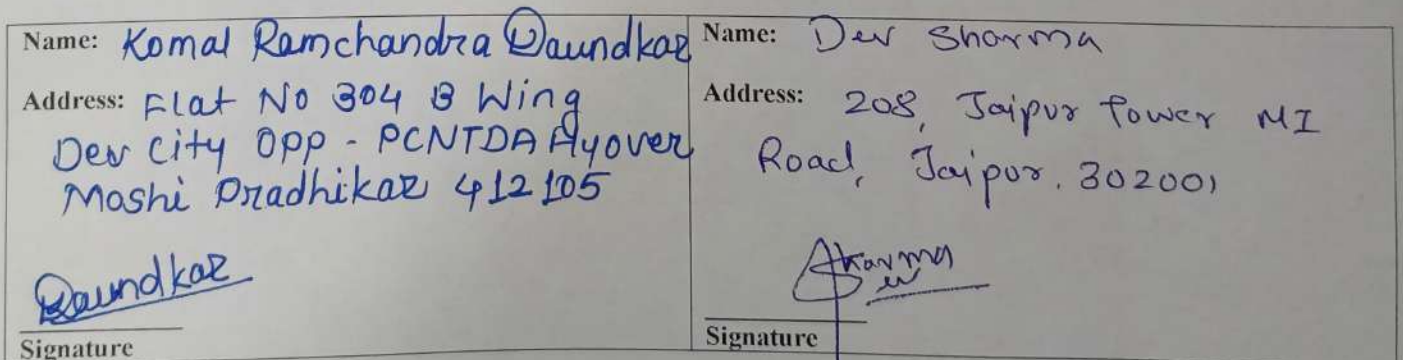 Name: Komal Ramchandra Daundkar
Address: Flat No 304 B Wing
Dev City Opp - PCNTDA Flyover
Moshi Pradhikar 412105
Daundkar
Signature
Name: Dev Sharma
Address: 208, Jaipur Tower MI
Road, Jaipur. 302001
Sharma
Dev
Signature